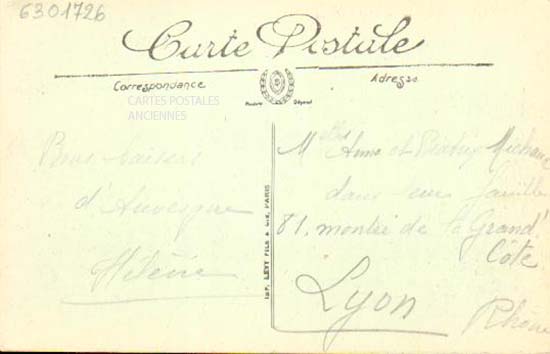 6301726
Carte Postale
Correspondance
Adresse
CARTES POSTALES
ANCIENNES
Marque Déposé
Bons baisers
d'Auvergne
Hélène
Mlles Anne et
dans leur famille
81, montée de la Grand'
Côte
Lyon
Rhône
IMP. LEVY FILS & CIE, PARIS